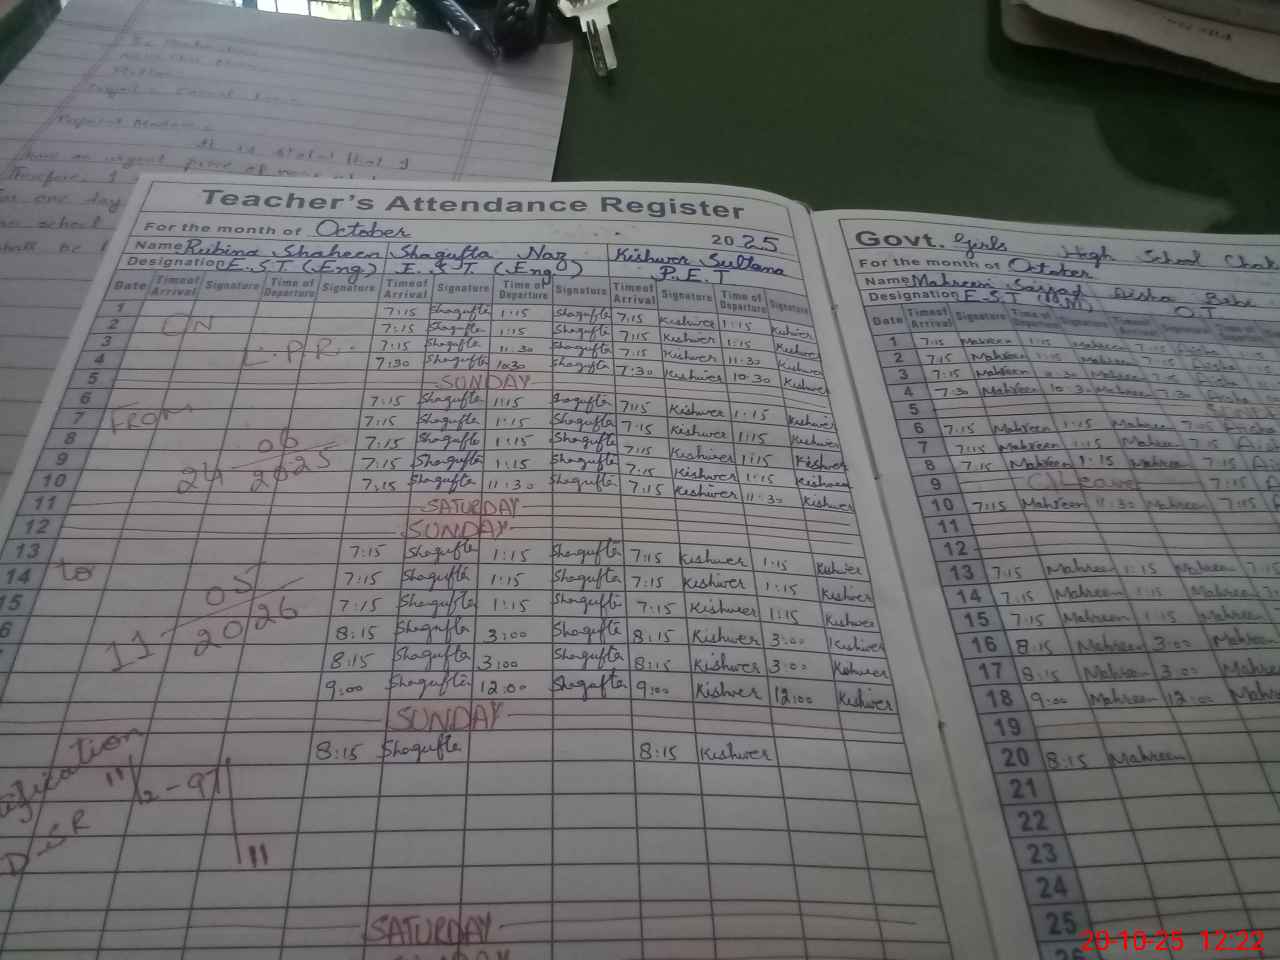 It is stated that I
urgent piece of
Therefore I
for one day
school
Teacher's Attendance Register
For the month of October 2025
Name Rubina Shaheen Shagufta Naz Kishwer Sultana
Designation E.S.T (Eng) E.S.T (Eng) P.E.T
Date Time of Arrival Signature Time of Departure Signature Time of Arrival Signature Time of Departure Signature Time of Arrival Signature Time of Departure Signature
1 7:15 Shagufta 1:15 Shagufta 7:15 Kishwer 1:15 Kishwer
2 ON 7:15 Shagufta 1:15 Shagufta 7:15 Kishwer 1:15 Kishwer
3 L.P.R. 7:15 Shagufta 11:30 Shagufta 7:15 Kishwer 11:30 Kishwer
4 7:30 Shagufta 10:30 Shagufta 7:30 Kishwer 10:30 Kishwer
5 SUNDAY
6 7:15 Shagufta 1:15 Shagufta 7:15 Kishwer 1:15 Kishwer
7 FROM 7:15 Shagufta 1:15 Shagufta 7:15 Kishwer 1:15 Kishwer
8 7:15 Shagufta 1:15 Shagufta 7:15 Kishwer 1:15 Kishwer
9 24 06 2025 7:15 Shagufta 1:15 Shagufta 7:15 Kishwer 1:15 Kishwer
10 7:15 Shagufta 11:30 Shagufta 7:15 Kishwer 11:30 Kishwer
11 SATURDAY
12 SUNDAY
13 7:15 Shagufta 1:15 Shagufta 7:15 Kishwer 1:15 Kishwer
14 to 7:15 Shagufta 1:15 Shagufta 7:15 Kishwer 1:15 Kishwer
15 05 7:15 Shagufta 1:15 Shagufta 7:15 Kishwer 1:15 Kishwer
6 11 2026 8:15 Shagufta 3:00 Shagufta 8:15 Kishwer 3:00 Kishwer
8:15 Shagufta 3:00 Shagufta 8:15 Kishwer 3:00 Kishwer
9:00 Shagufta 12:00 Shagufta 9:00 Kishwer 12:00 Kishwer
SUNDAY
8:15 Shagufta 8:15 Kishwer
ification
D.S.R
SATURDAY
Govt. Girls High School Chak
For the month of October
Name Mahreen Aisha Bibi
Designation E.S.T O.T
Date Time of Arrival Signature Time of Departure
1 7:15 Mahreen 1:15 Mahreen 7:15
2 7:15 Mahreen 1:15 Mahreen 7:15
3 7:15 Mahreen 11:30 Mahreen 7:15
4 7:30 Mahreen 10:30 Mahreen 7:30
5
6 7:15 Mahreen 1:15 Mahreen 7:15
7 7:15 Mahreen 1:15 Mahreen 7:15
8 7:15 Mahreen 1:15 Mahreen 7:15
9 C/Leave 7:15
10 7:15 Mahreen 11:30 Mahreen 7:15
11
12
13 7:15 Mahreen 1:15 Mahreen 7:15
14 7:15 Mahreen 1:15 Mahreen
15 7:15 Mahreen 1:15 Mahreen
16 8:15 Mahreen 3:00 Mahreen
17 8:15 Mahreen 3:00 Mahree
18 9:00 Mahreen 12:00 Mah
19
20 8:15 Mahreen
21
22
23
24
25
20-10-25 12:22